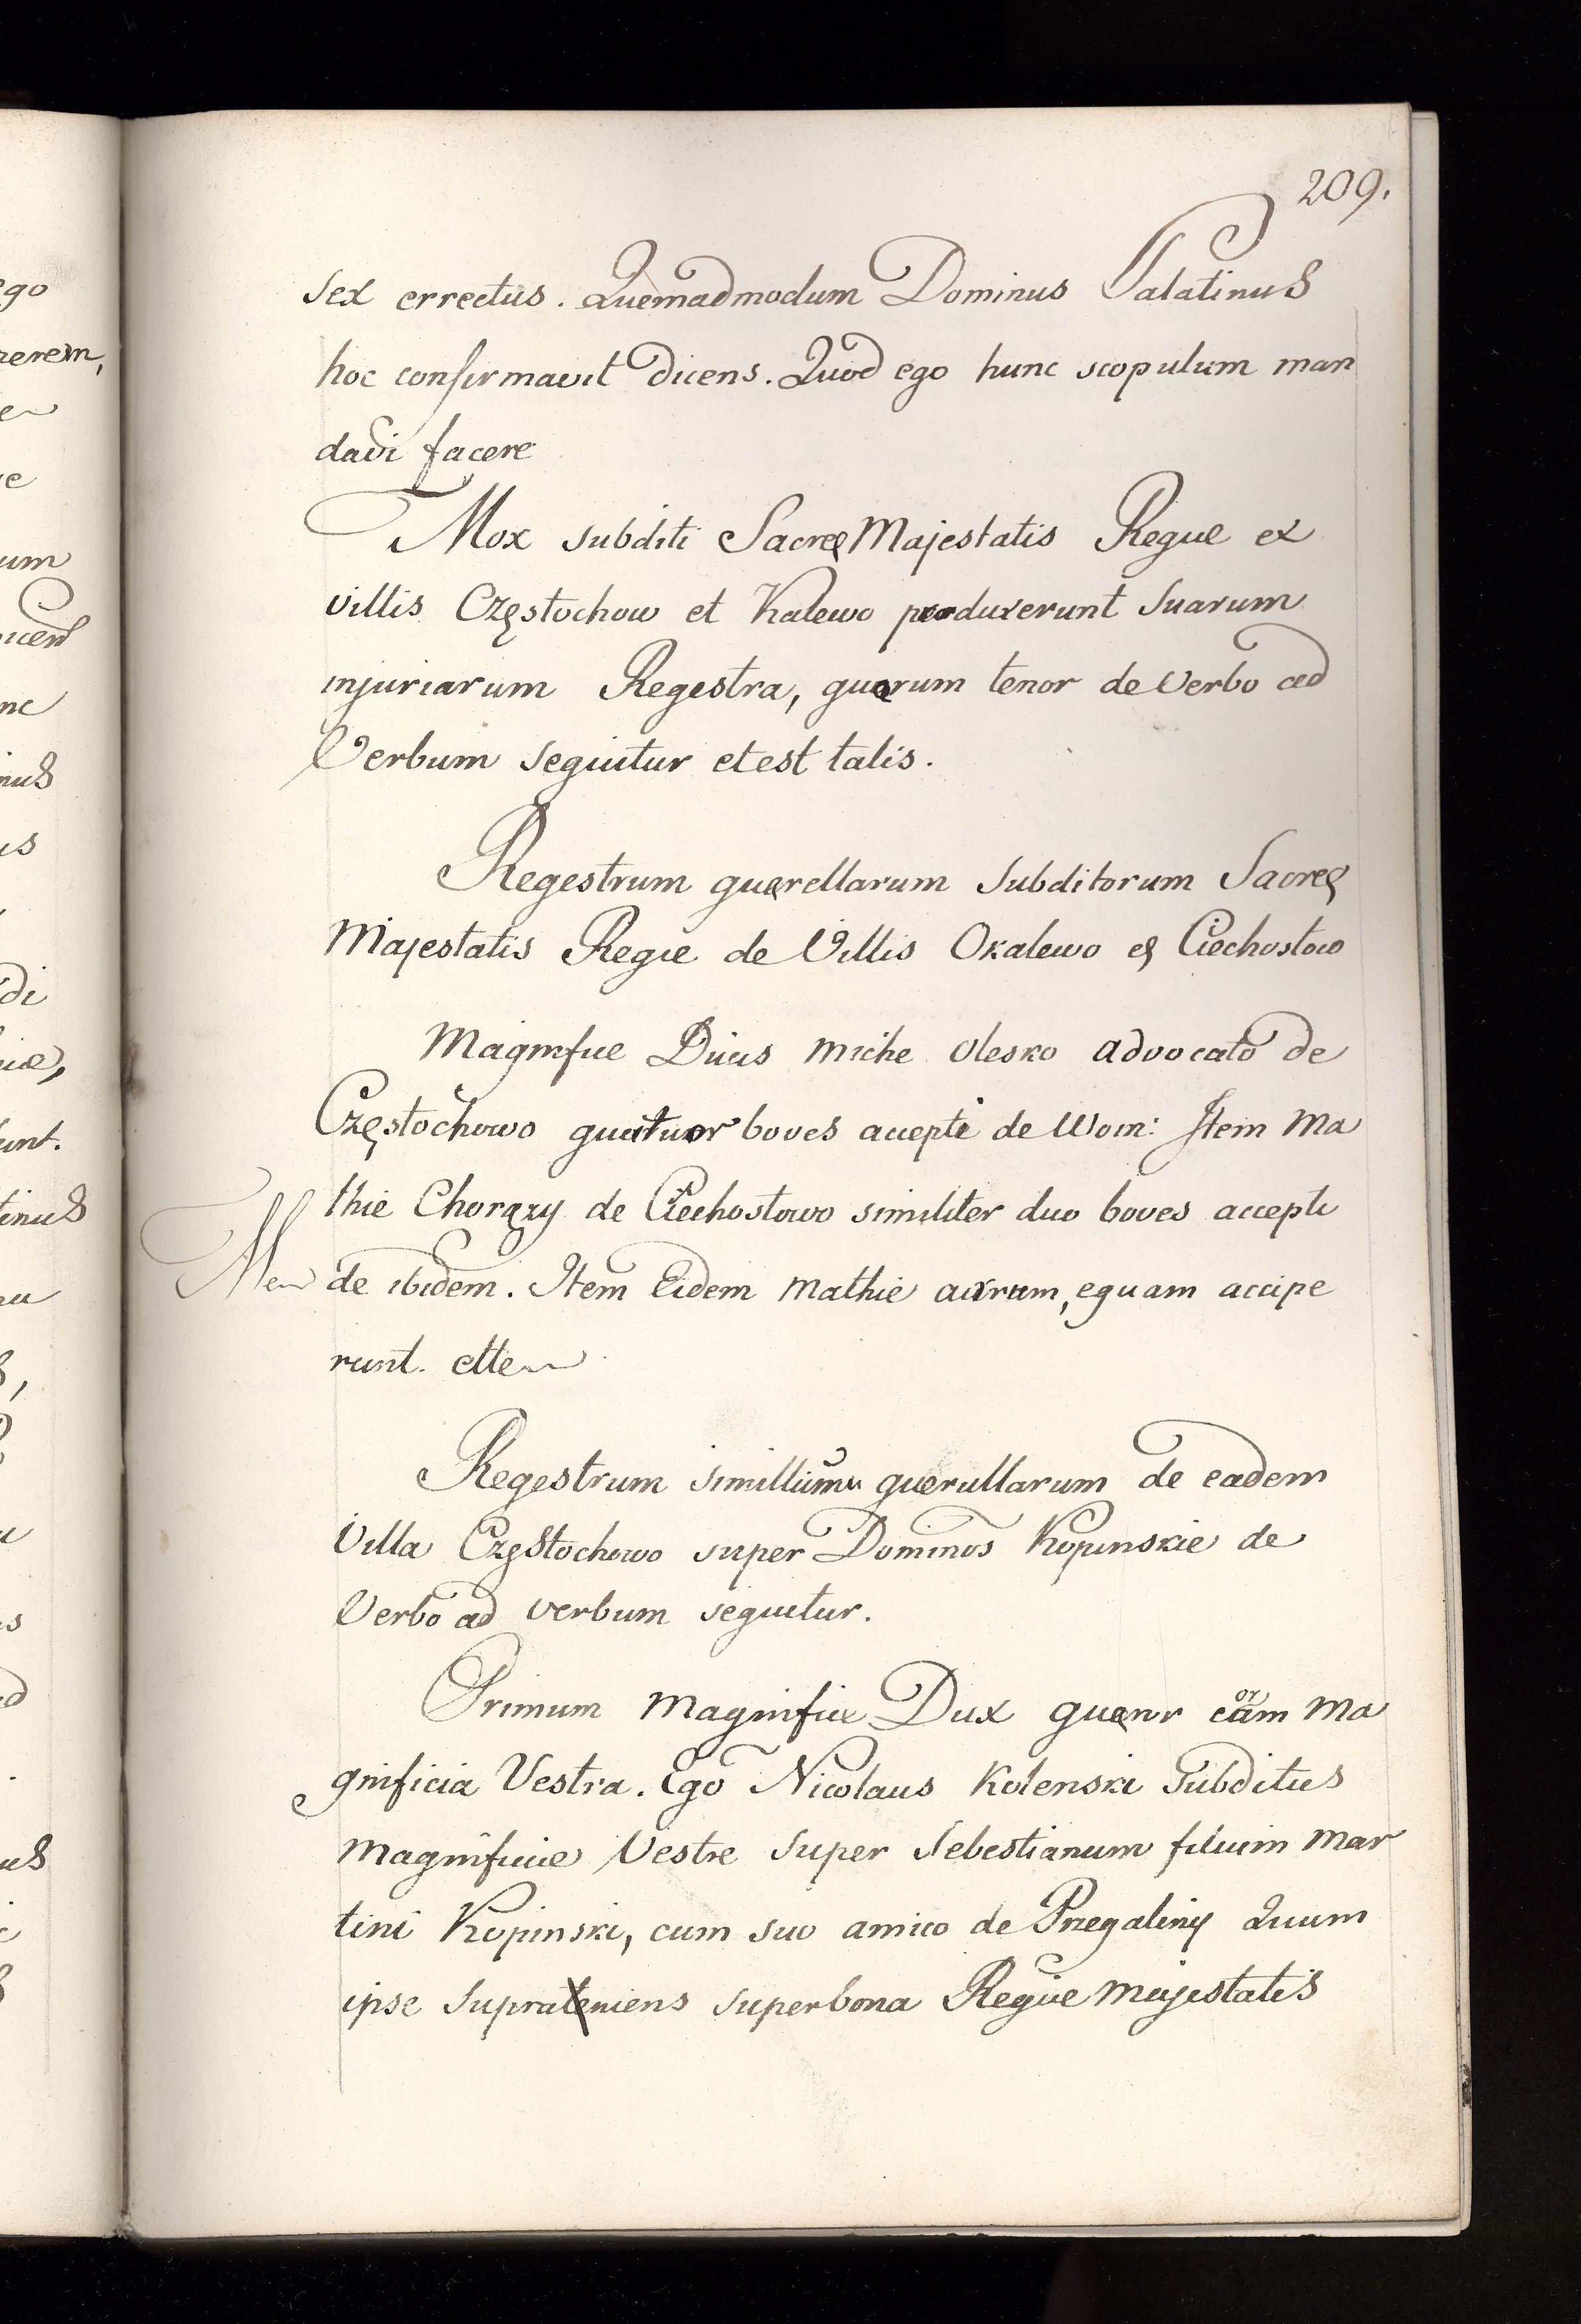 209.
sex errectus. Quemadmodum Dominus Palatinus
hoc confirmavit dicens. Quod ego hunc scopulum man
davi facere
Mox subditi Sacrę Majestatis Regiæ ex
villis Częstochow et Kalewo produxerunt suarum
injuriarum Regestra, quorum tenor de verbo ad
Verbum sequitur et est talis.
Regestrum querellarum subditorum Sacrę
Majestatis Regie de Villis Okalewo & Ciechostow
Magnifice miche Olesko advocato de
Częstochowo quatuor boves accepti de Item Ma
thie Chorązy de Ciechostowo similiter duo boves accepti
de ibidem. Item Eidem Mathie equam accipe
runt.
Regestrum querullarum de eadem
Villa Częstochowo super Dominos Kopinskie de
Verbo ad verbum sequitur.
Primum Magnifice Dux coram Ma
gnificia Vestra. Ego Nicolaus Kolenski Subditus
Magnificie Vestre super Sebestianum filium Mar
tini Kopinski, cum suo amico de Przegaliny Quum
ipse super bona Regie Majestatis
ego
um
nc
nus
us
di
unt.
tinus